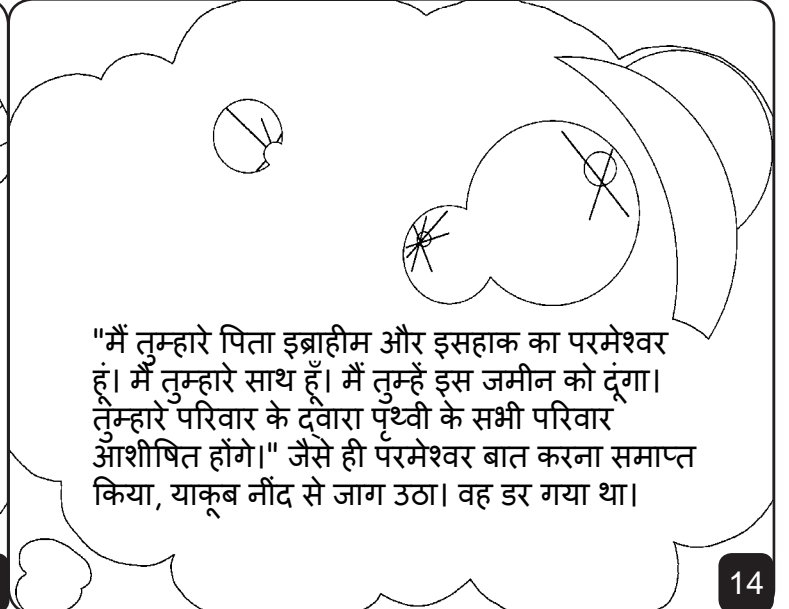 "मैं तुम्हारे पिता इब्राहीम और इसहाक का परमेश्वर
हूं। मैं तुम्हारे साथ हूँ। मैं तुम्हें इस जमीन को दूंगा।
तुम्हारे परिवार के द्वारा पृथ्वी के सभी परिवार
आशीषित होंगे।" जैसे ही परमेश्वर बात करना समाप्त
किया, याकूब नींद से जाग उठा। वह डर गया था।
14